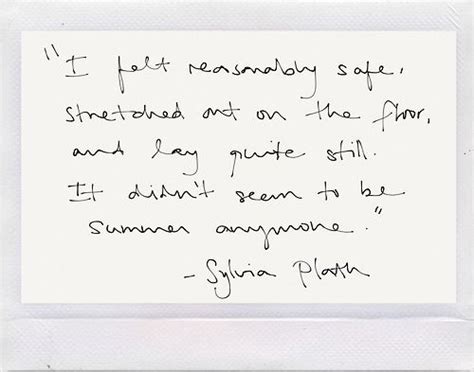 "I felt reasonably safe,
stretched out on the floor,
and lay quite still.
It didn't seem to be
summer anymore."
- Sylvia Plath